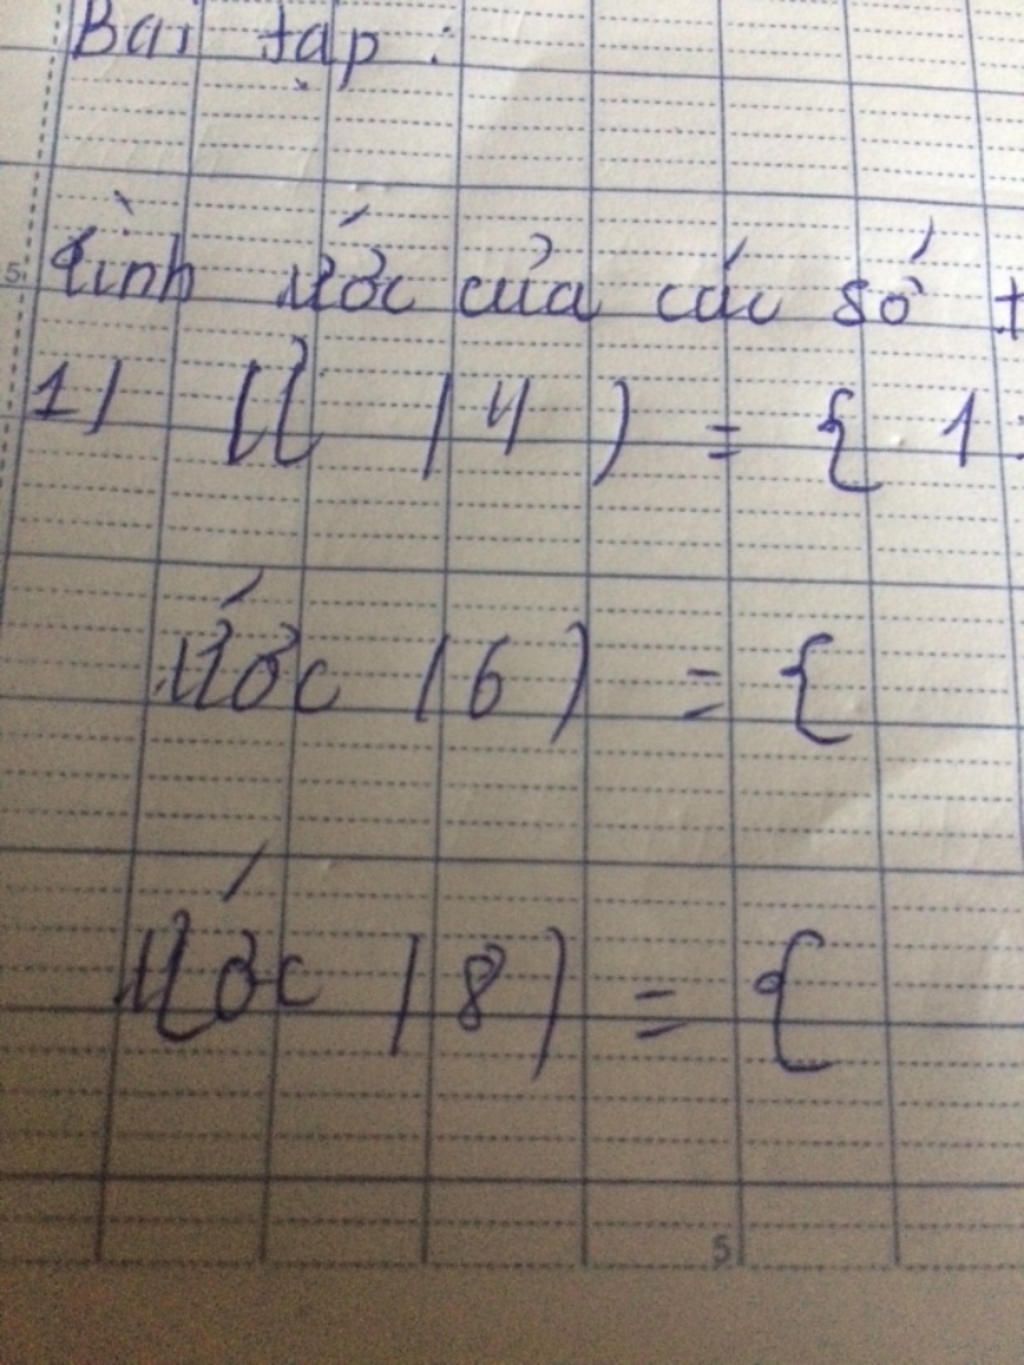 Bài tập :
tình ước của các số t
1) Ư (4) = { 1 ;
Ước (6) = {
Ước (8) = {
5
5